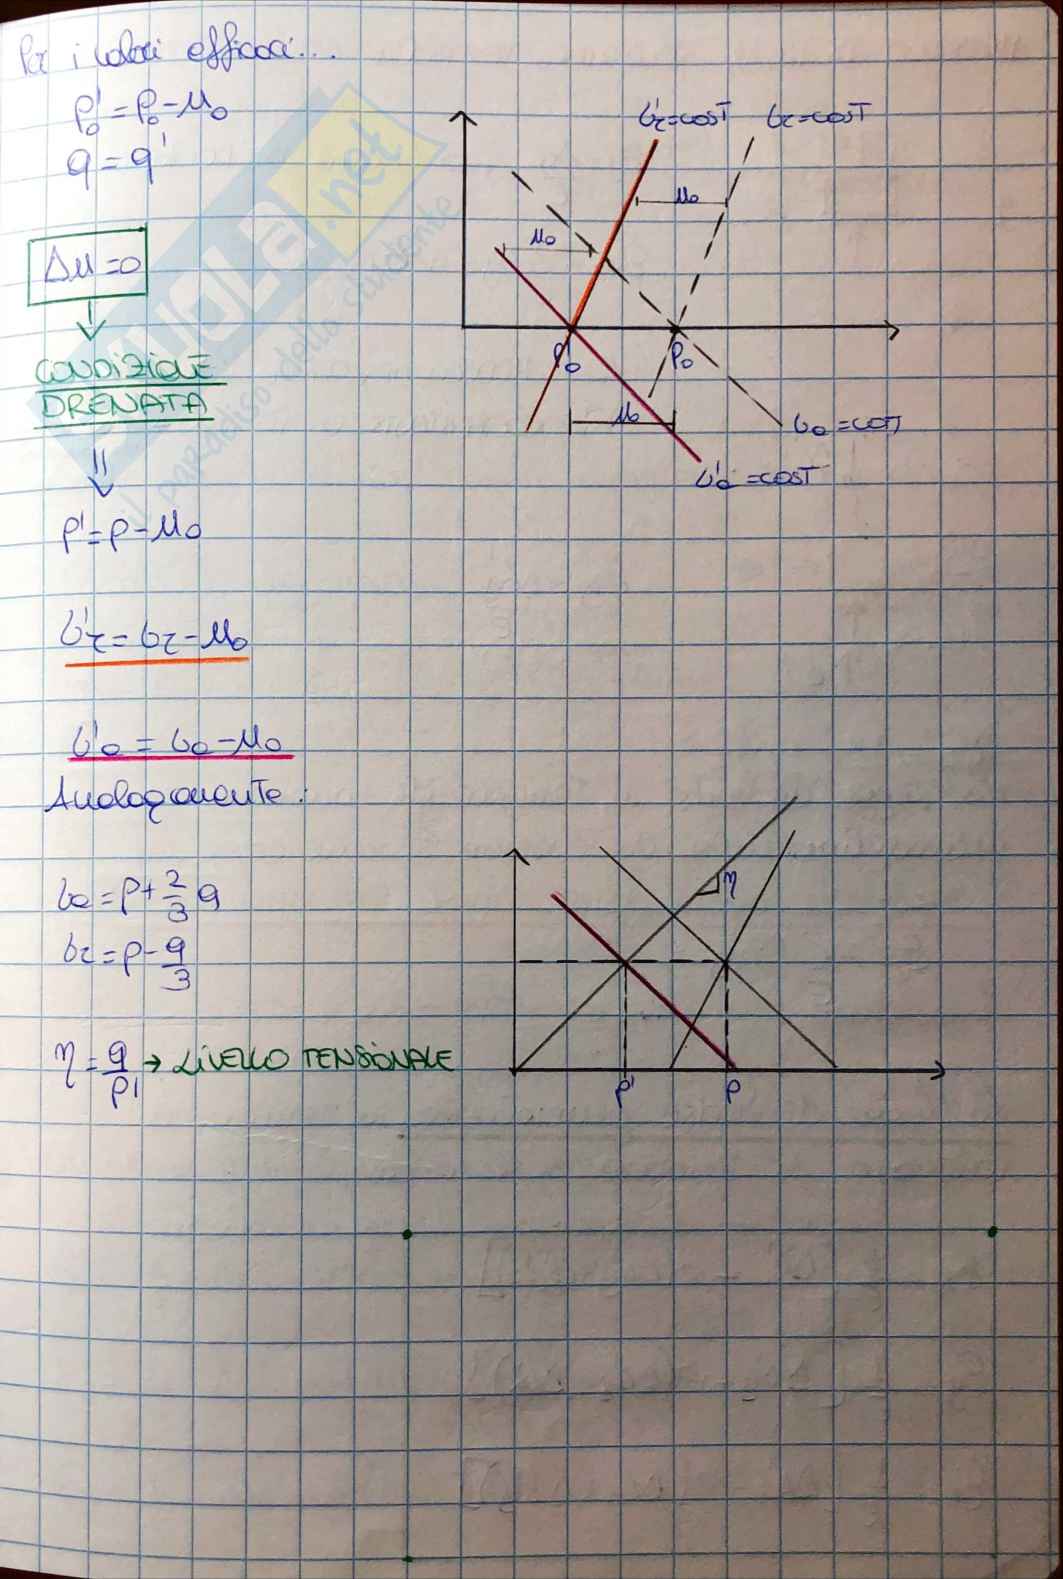 Per i valori efficaci...
p'₀ = p₀ - u₀
q = q'
Δu = 0
CONDIZIONE
DRENATA
p' = p - u₀
σ'r = σr - u₀
σ'a = σa - u₀
Analogamente:
σa = p + 2/3 q
σr = p - q/3
η = q/p' → LIVELLO TENSIONALE
σ'r = cosT σr = cosT
u₀
u₀
p'₀ p₀
u₀
σa = cosT
σ'a = cosT
η
p' p
SKUOLA.net
il paradiso dello studente